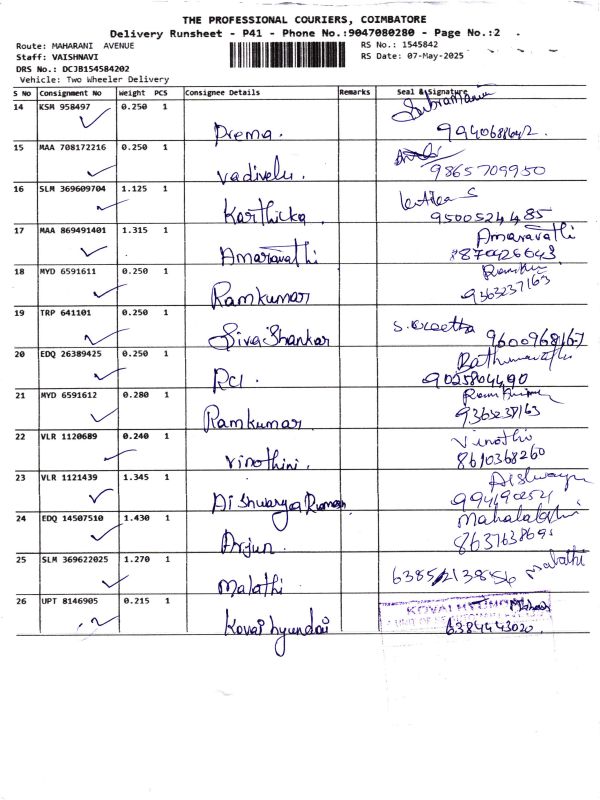 THE PROFESSIONAL COURIERS, COIMBATORE
Delivery Runsheet - P41 - Phone No.:9047080280 - Page No.:2
Route: MAHARANI AVENUE RS No.: 1545842
Staff: VAISHNAVI RS Date: 07-May-2025
DRS No.: DCJB154584202
Vehicle: Two Wheeler Delivery
S No Consignment No Weight PCS Consignee Details Remarks Seal & Signature
14 KSM 958497 0.250 1
Prema.
15 MAA 708172216 0.250 1
Vadivelu. 9865709950
16 SLM 369609704 1.125 1
Karthicka. 9500524485
17 MAA 869491401 1.315 1 Amaravathi
Amaravathi 8870426643
18 MYD 6591611 0.250 1
Ramkumar 9363237163
19 TRP 641101 0.250 1
Siva Shankar 9600968167
20 EDQ 26389425 0.250 1
RCI. 9025804490
21 MYD 6591612 0.280 1
Ramkumar. 9363237163
22 VLR 1120689 0.240 1 Vinothi
Vinothini. 8610368260
23 VLR 1121439 1.345 1
Aishwarya
24 EDQ 14507510 1.430 1
Arjun.
25 SLM 369622025 1.270 1 Malathi
Malathi
26 UPT 8146905 0.215 1 KOVAI HYUNDAI
Kovai hyundai 6384443020.